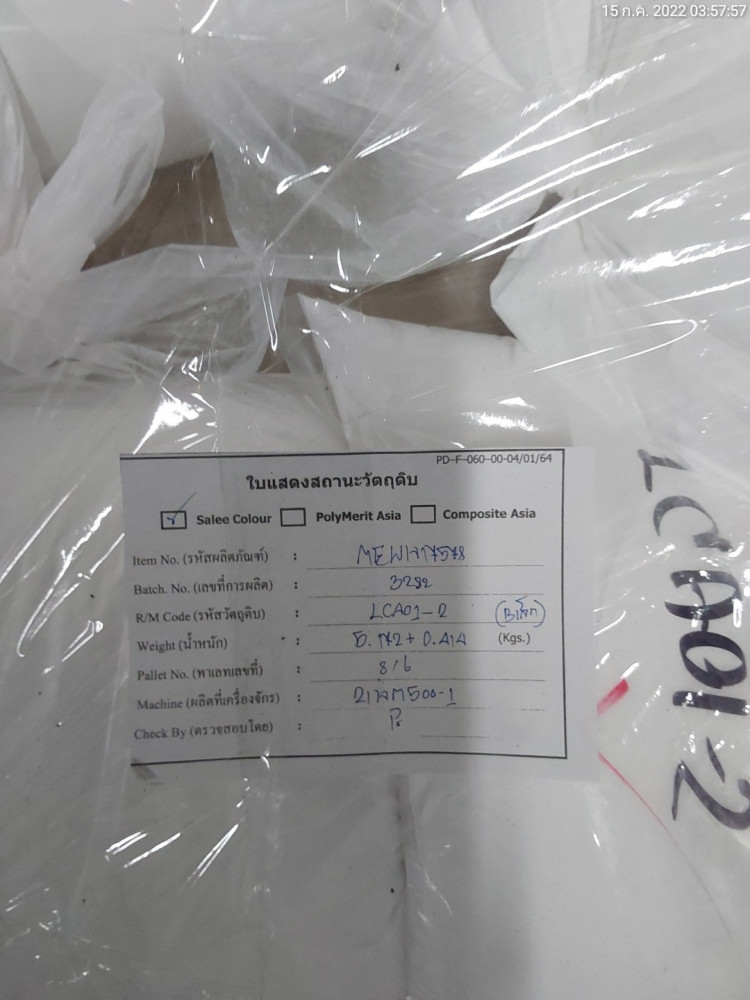 15 ก.ค. 2022 03:57:57
PD-F-060-00-04/01/64
ใบแสดงสถานะวัตถุดิบ
Salee Colour PolyMerit Asia Composite Asia
Item No. (รหัสผลิตภัณฑ์) :
Batch. No. (เลขที่การผลิต) : 3282
R/M Code (รหัสวัตถุดิบ) : LCA01-2
Weight (น้ำหนัก) : 5.172 + 0.414 (Kgs.)
Pallet No. (พาเลทเลขที่) : 8/6
Machine (ผลิตที่เครื่องจักร) :
Check By (ตรวจสอบโดย) :
LCA01-2